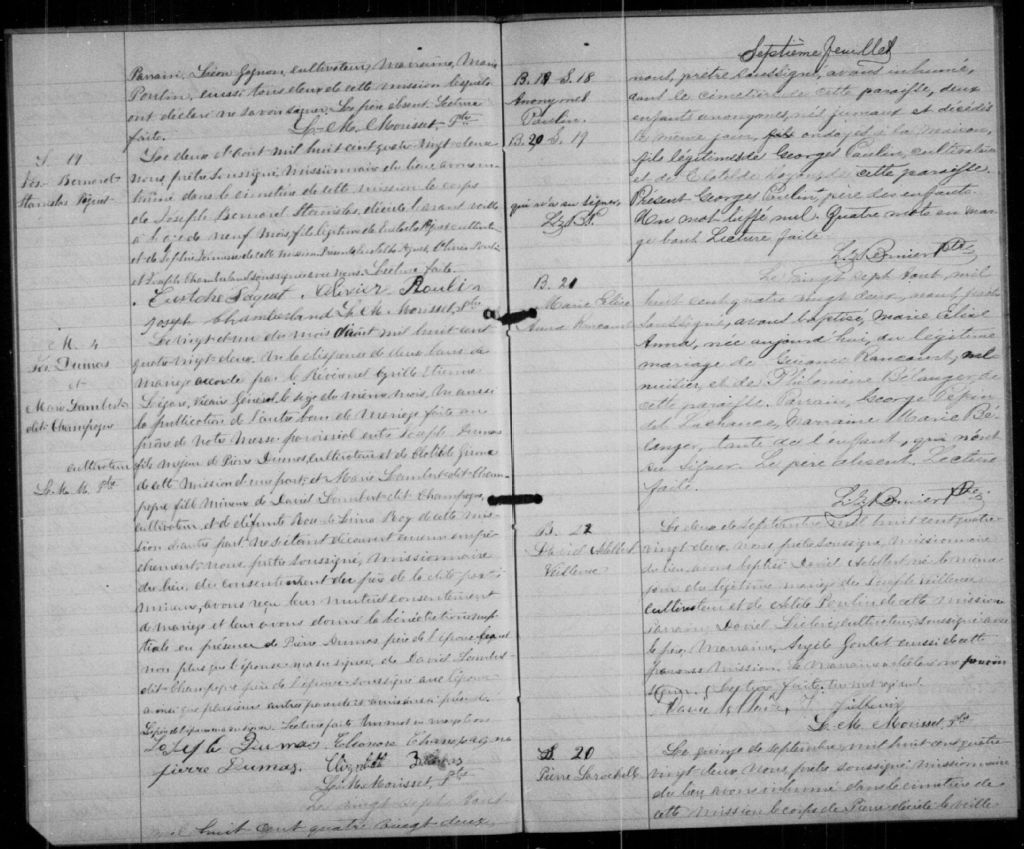 Parrain, Léon Gagnon, cultivateur, Marraine, Marie
Poulin, aussi tous deux de cette mission lesquels
ont déclaré ne savoir signer. Le père absent Lecture
faite. L. M. Morisset, Ptre
S. 19
Jos. Bernard
Stanislas
Le deux d'Aout mil huit cent quatre vingt deux
Nous, prêtre soussigné missionnaire du lieu avons in-
humé dans le cimetière de cette mission le corps
de Joseph Bernard Stanislas, décédé l'avant veille
à l'age de neuf mois, fils légitime de
et de de cette mission
et Joseph Chamberland soussignés avec nous. Lecture faite.
Olivier Poulin
Joseph Chamberland L. M. Morisset, Ptre
M. 4
Jos. Dumas
et
Marie Lambert
dit Champagne
cultivateur
L. M. M. Ptre
Le vingt et un du mois d'Aout mil huit cent
quatre vingt deux. Vu la dispense de deux bans de
mariage accordé par le Révérend Cyrille Etienne
Légaré, Vicaire Général le sept du même mois, Vu aussi
la publication de l'autre ban de mariage faite au
prône de notre Messe paroissial entre Joseph Dumas
fils majeur de Pierre Dumas, cultivateur et de Clotilde
de cette Mission d'une part, et Marie Lambert dit Cham-
pagne fille mineure de David Lambert dit Champagne,
cultivateur et de défunte Rose de Lima Roy de cette mis-
sion d'autre part. Ne s'étant découvert aucun empê-
chement, nous, prêtre soussigné, missionnaire
du lieu, du consentement du père de la dite partie
mineure, avons reçu leur mutuel consentement
de mariage et leur avons donné la bénédiction nup-
tiale en présence de Pierre Dumas, père de l'époux lequel
non plus que l'épouse n'a su signer, de David Lambert
dit Champagne père de l'épouse soussigné avec l'époux
ainsi que plusieurs autres parents et amis
Lecture faite. Un mot en
Joseph Dumas Eleonore Champagne
Pierre Dumas.
L. M. Morisset, Ptre
Le vingt sept Aout
mil huit cent quatre vingt deux,
Septième feuillet
B. 18 S. 18
Anonymes
Poulin
B. 20 S. 19
qui n'a su signer,
L. Z. B. P.
nous, prêtre soussigné, avons inhumé,
dans le cimetière de cette paroisse, deux
enfants anonymes, nés jumeaux et décédés
le même jour, ondoyés à la maison,
fils légitimes de Georges Poulin, cultivateur
et de Clotilde de cette paroisse.
Présent Georges Poulin, père des enfants
Un mot biffé nul. Quatre mots en mar-
ge bons Lecture faite.
L. Z. Bernier Ptre
B. 21
Marie Elise
Anna Rancourt
Le Vingt Sept Aout, mil
huit cent quatre vingt deux, nous, prêtre
Soussigné, avons baptisé, Marie Elise
Anna, née aujourd'hui, du légitime
mariage de Rancourt,
et de Philomène Bélanger, de
cette paroisse. Parrain, George Pépin
dit Lachance, Marraine Marie Bé-
langer, tante de l'enfant, qui n'ont
su signer. Le père absent. Lecture
faite.
L. Z. Bernier Ptre
B. 22
David Adelbert
Veilleux
Le deux de Septembre mil huit cent quatre
vingt deux, Nous, prêtre soussigné, missionnaire
du lieu avons baptisé David Adelbert né le même
jour du légitime mariage de Joseph Veilleux
cultivateur et de Poulin de cette mission
Parrain, David Leclerc, cultivateur, soussigné avec
le père, Marraine, Angèle Goulet aussi de cette
Mission. La Marraine a déclaré ne pouvoir
signer. Lecture faite. Un mot
L. M. Morisset, Ptre
S. 20
Pierre Larochelle
Le quinze de septembre, mil huit cent quatre
vingt deux, Nous, prêtre soussigné missionnaire
du lieu avons inhumé dans le cimetière de
cette mission le corps de Pierre décédé la veille